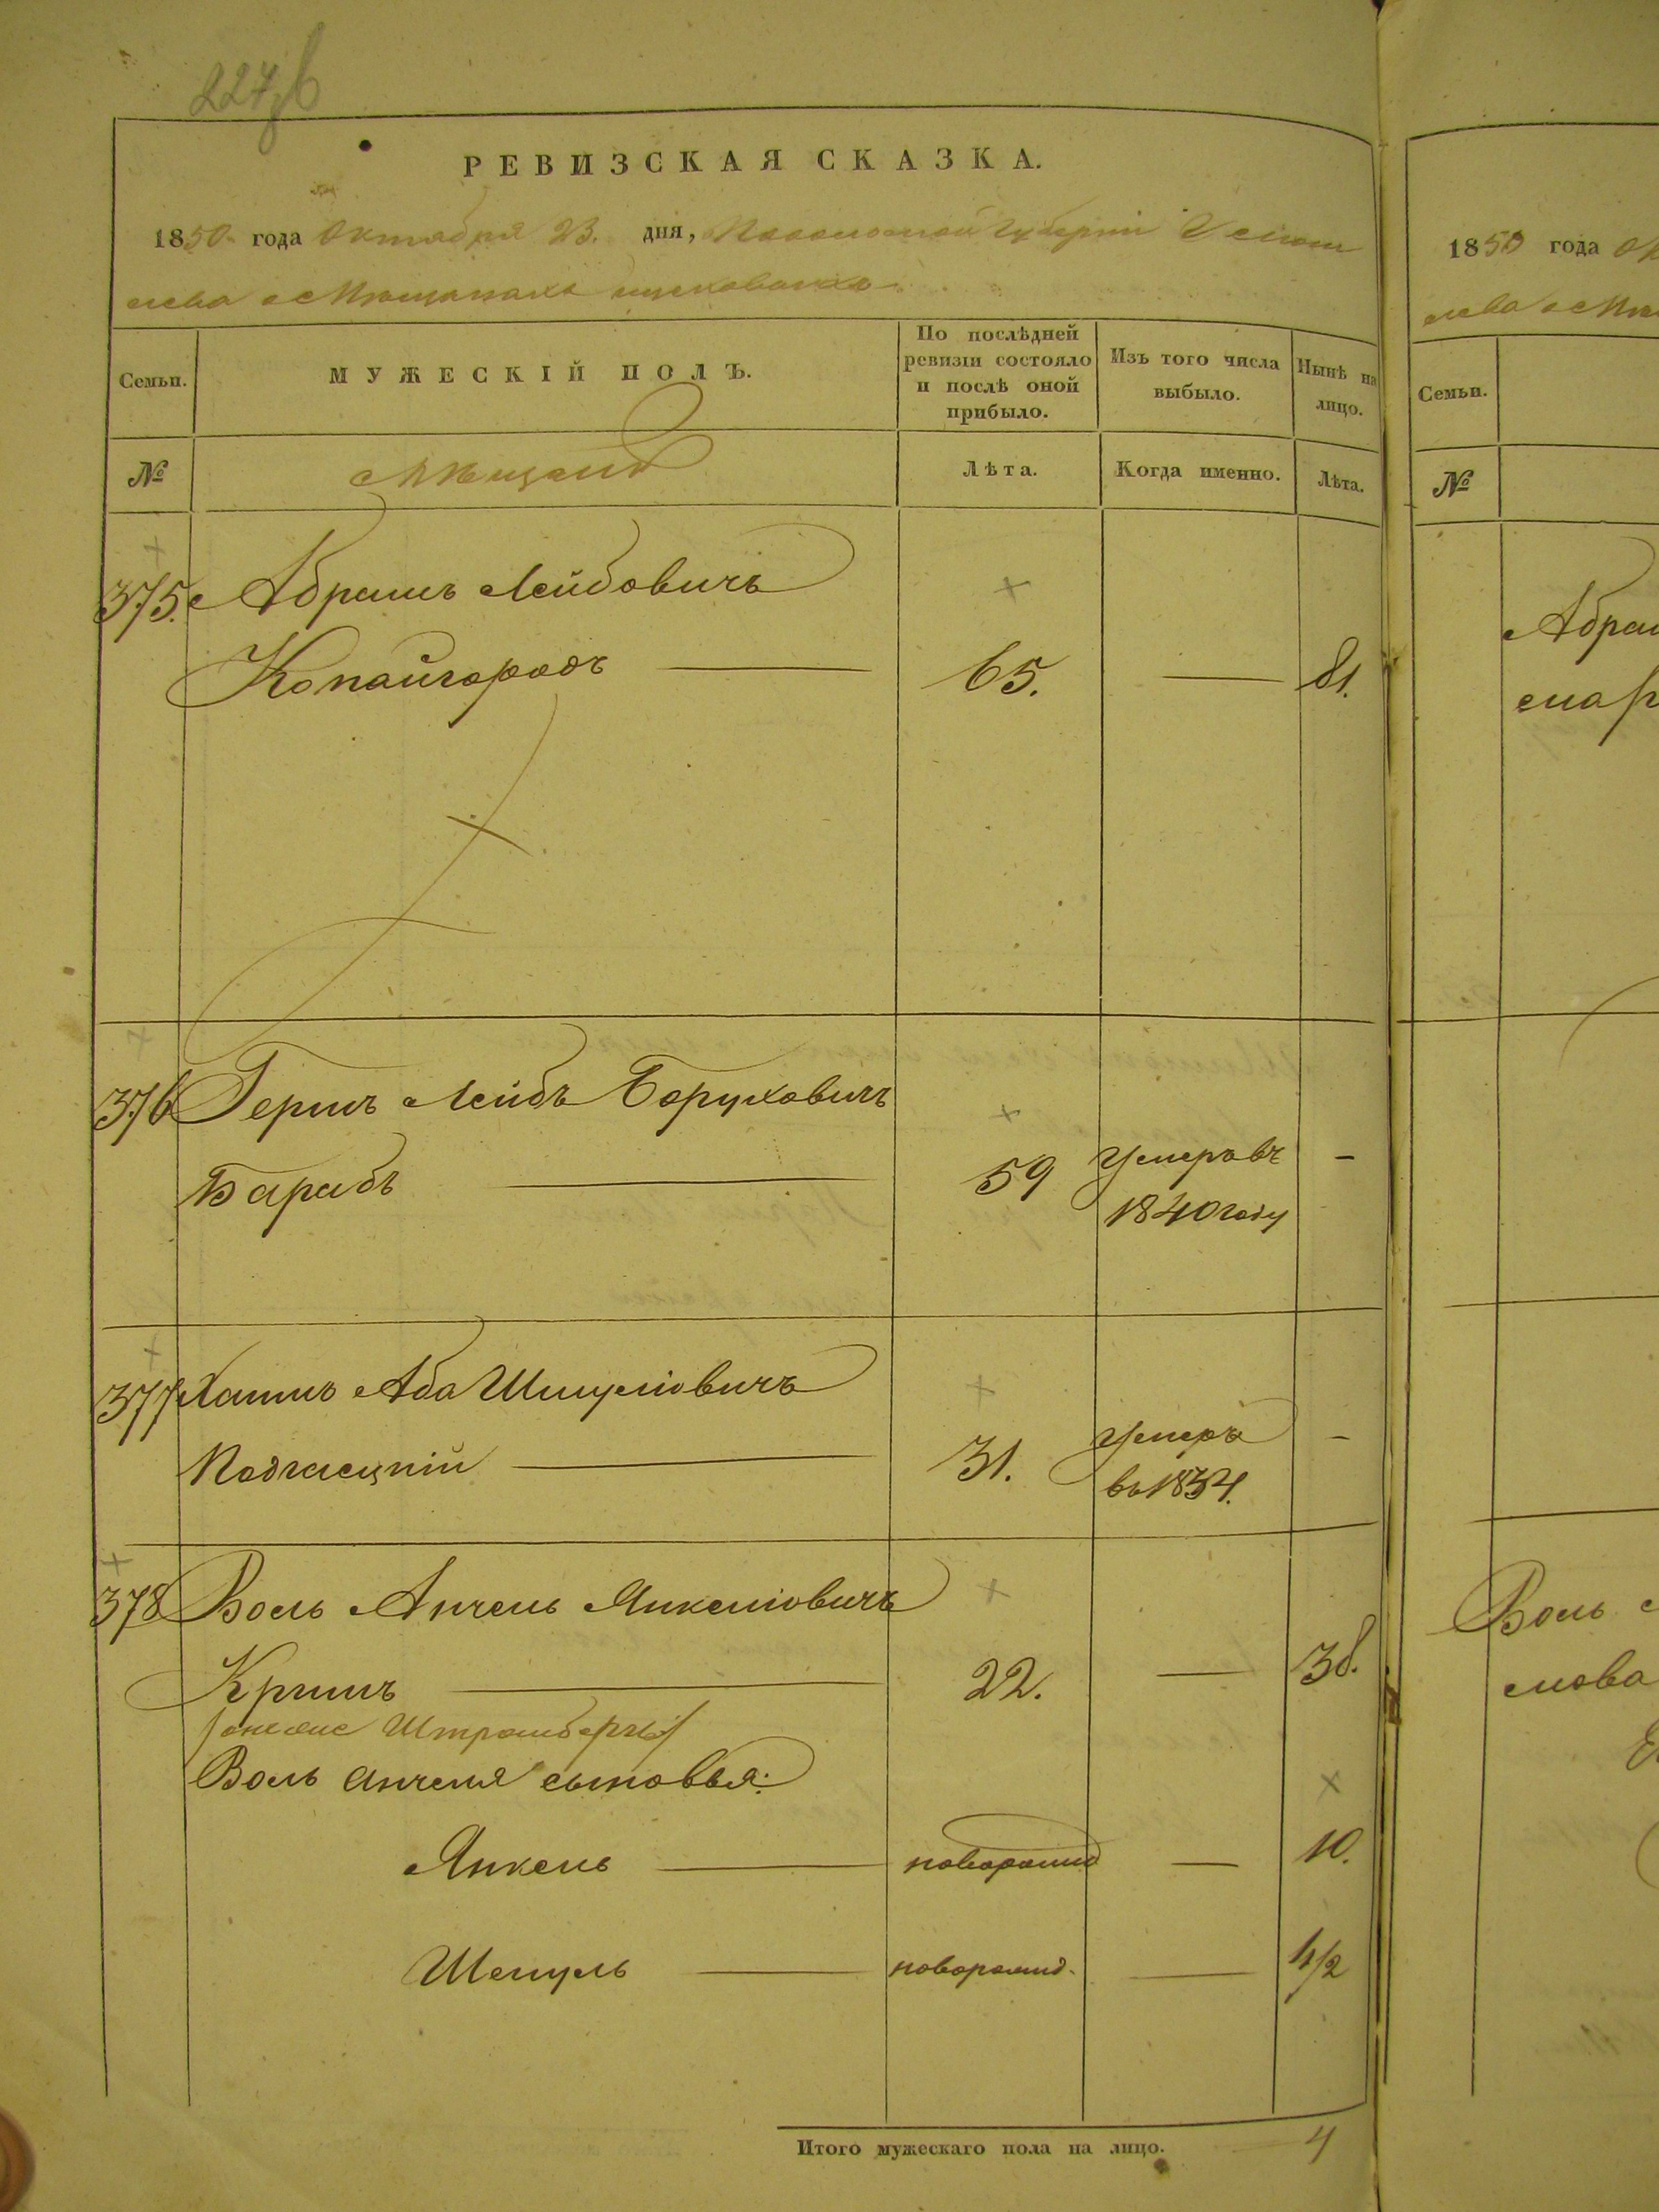 РЕВИЗСКАЯ СКАЗКА.
1850 года Октября 23. дня, Подольской Губерніи
Семьи.
МУЖЕСКІЙ ПОЛЪ.
По послѣдней ревизіи состояло и послѣ оной прибыло.
Изъ того числа выбыло.
Нынѣ на лицо.
№
Мѣщане
Лѣта.
Когда именно.
Лѣта.
375. Абрамъ Лейбовичъ
Копайгородъ — 65. — 81.
376 Гершъ Лейбъ Боруховичъ
Барабъ — 59 Умеръ въ –
1840 году
377 Хаимъ Аба Шмуліовичъ
Подгаецкій — 31. Умеръ –
въ 1834.
378 Воль Анчель Янкеліовичъ
Кришъ — 22. — 38.
/онже Штромбергъ/
Воль Анчеля сыновья:
Янкель — новорожд — 10.
Шмуль — новорожд. — 1/2
Итого мужескаго пола на лицо. 4
1850 года
Семьи.
№
Абрам
Воль